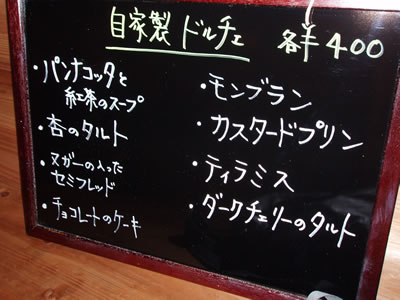 自家製 ドルチェ 各¥400
・パンナコッタと
紅茶のスープ
・杏のタルト
・ヌガーの入った
セミフレッド
・チョコレートのケーキ
・モンブラン
・カスタードプリン
・ティラミス
・ダークチェリーのタルト